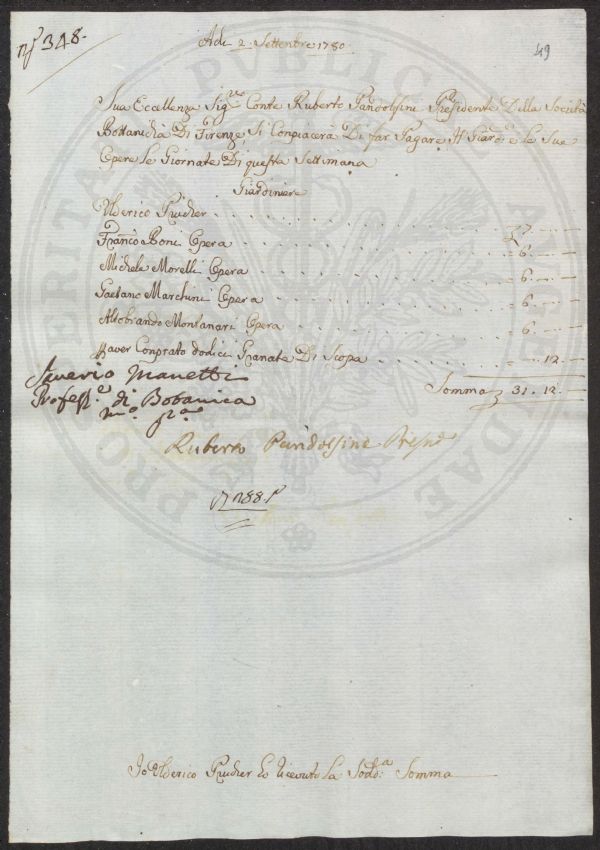 n° 348.
49
Adi 2. Settembre 1780
Sua Eccellenza Sig.re Conte Ruberto Pandolfini Presidente Della Società
Bottanicha Di Firenze Si Conpiacerà Di far Pagare Al Giard.e e le Sue
Opere Le Giornate Di questa Settimana
Giardiniere
Ulderico . . . 7. —
Franco Boni Opera . . . = 6. —
Michele Morelli Opera . . . = 6. —
Gaetano Marchini Opera . . . = 6. —
Aldobrando Montanari Opera . . . = 6. —
Haver Conprato dodici Granate Di Scopa . . . = 12. —
Somma 31. 12. —
Saverio Manetti
Profess.e di Botanica
m.o p.a
Ruberto Pandolfini Presid.e
188
Io Ulderico Ho Riceuto La Sod.a Somma
PROSPERITATI PUBLICAE AUGENDAE